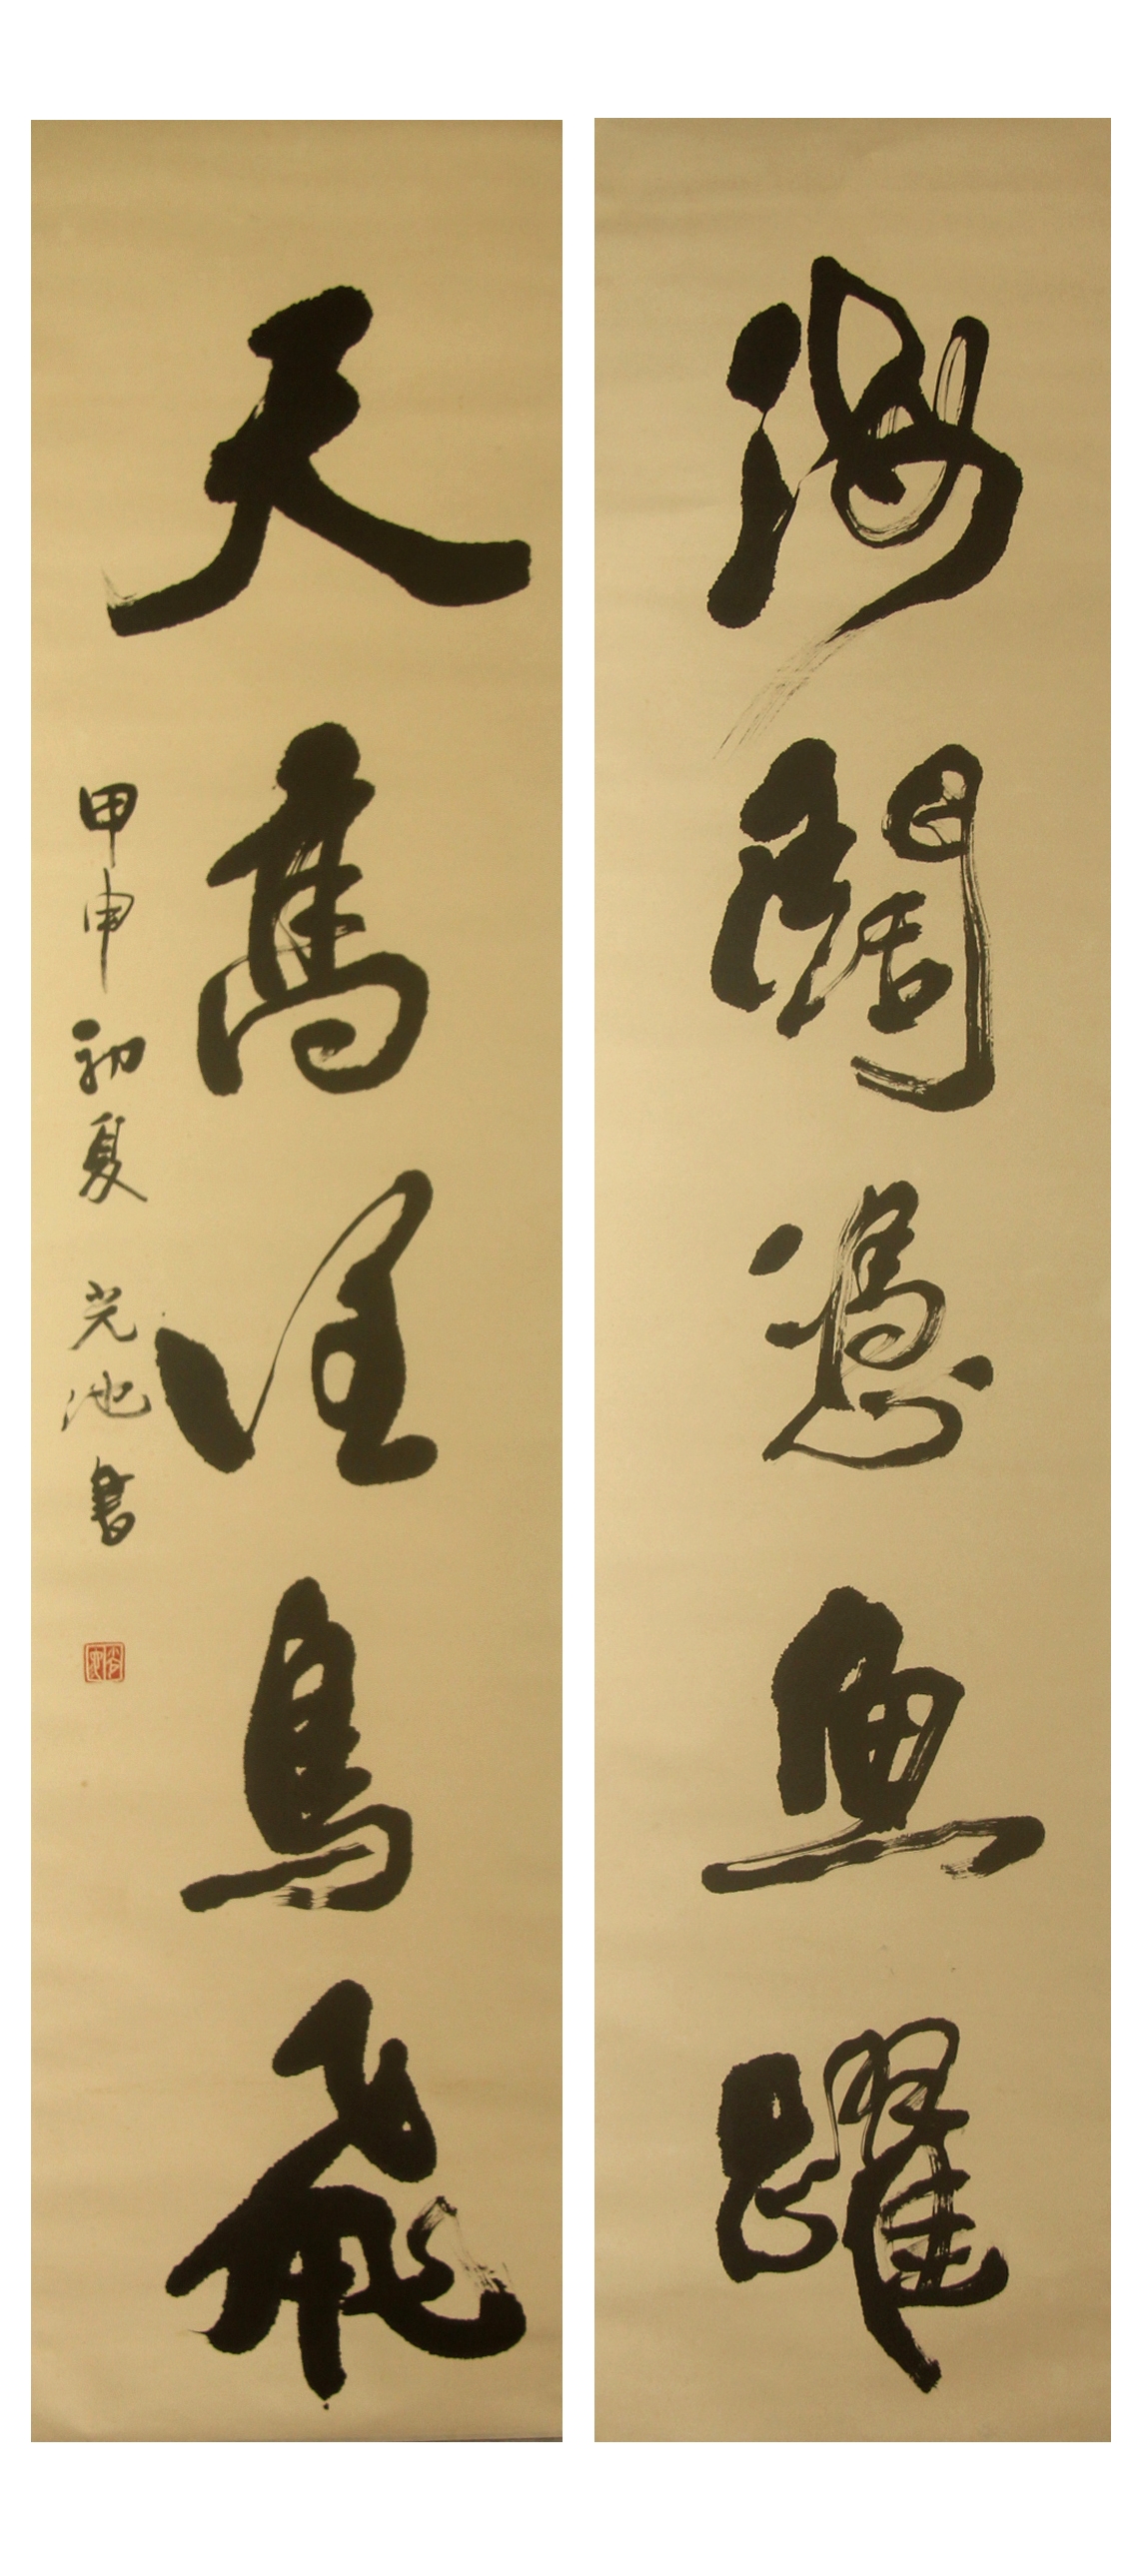 海闊憑魚躍
天高任鳥飛
甲申初夏 光池書